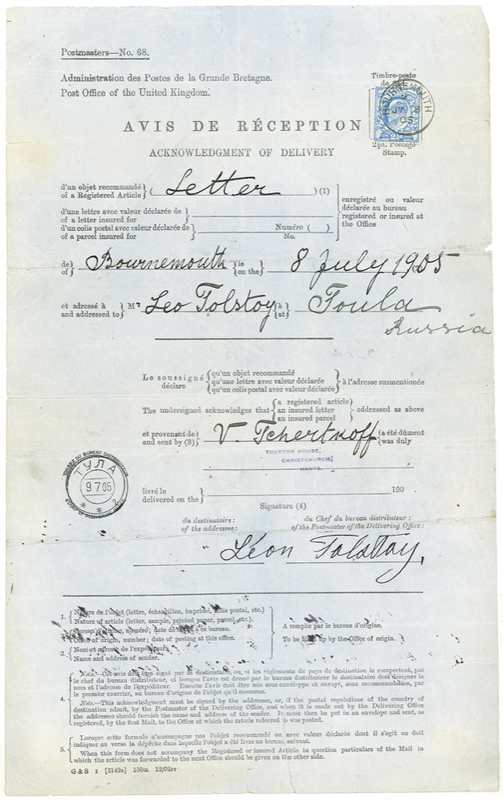 Postmasters—No. 68.
Administration des Postes de la Grande Bretagne.
Post Office of the United Kingdom.
Timbre-poste
BOURNEMOUTH
05
2½d. Postage
Stamp.
AVIS DE RÉCEPTION
ACKNOWLEDGMENT OF DELIVERY
d'un objet recommandé
of a Registered Article ( Letter )(1)
d'une lettre avec valeur déclarée de
of a letter insured for
d'un colis postal avec valeur déclarée de
of a parcel insured for
Numéro ( )
No.
enregistré ou valeur
déclarée au bureau
registered or insured at
the Office
de
of Bournemouth le
on the 8 July 1905
et adressé à
and addressed to Mr Leo Tolstoy à
at Toula
Russia
Le soussigné
déclare
qu'un objet recommandé
qu'une lettre avec valeur déclarée
qu'un colis postal avec valeur déclarée
à l'adresse susmentionée
The undersigned acknowledges that
a registered article
an insured letter
an insured parcel
addressed as above
et provenant de
and sent by (2) V. Tchertkoff a été dûment
was duly
TUCKTON HOUSE,
CHRISTCHURCH,
HANTS.
ТУЛА
9 7 05
2
livré le
delivered on the 190
Signature (4)
du destinataire:
of the addressee:
du Chef du bureau distributeur:
of the Postmaster of the Delivering Office:
Léon Tolstoy,
1. Nature de l'objet (lettre, échantillon, imprimé, colis postal, etc.)
Nature of article (letter, sample, printed paper, parcel, etc.)
2. Bureau d'origine, numéro; date de dépôt à ce bureau.
Office of origin, number; date of posting at this office.
A remplir par le bureau d'origine.
To be filled up by the Office of origin.
3. Nom et adresse de l'expéditeur.
Name and address of sender.
4. Nota.—Cet avis doit être signé par le destinataire, ou, si les règlements du pays de destination le comportent, par
le chef du bureau distributeur, et
le premier courrier, au bureau d'origine de l'objet qu'il concerne.
Note.—This acknowledgment must be signed by the addressee, or, if the postal regulations of the country of
destination admit, by the Postmaster of the Delivering Office, and when it is made out by the Delivering Office
the addressee should furnish the name and address of the sender. It must then be put in an envelope and sent, as
registered, by the first Mail, to the Office at which the article referred to was posted.
5. Lorsque cette formule n'accompagne pas l'objet recommandé ou avec valeur déclarée dont il s'agit on doit
indiquer au verso la dépêche dans laquelle l'objet a été livré au bureau suivant.
When this form does not accompany the Registered or Insured Article in question particulars of the Mail in
which the article was forwarded to the next Office should be given on the other side.
G & S : [3149a] 150m 12/02rv